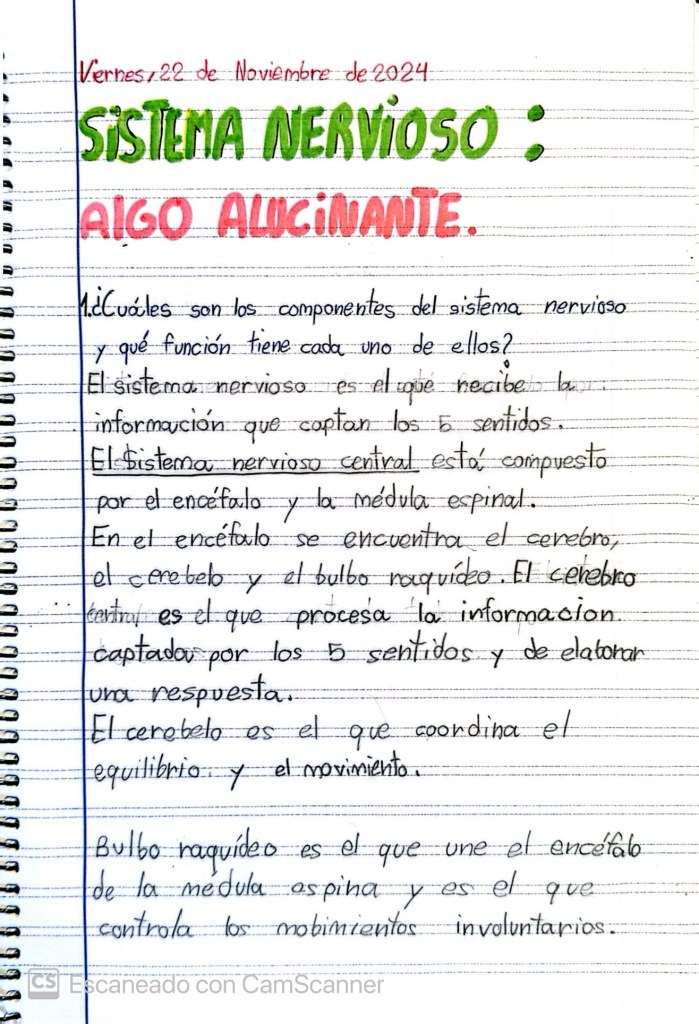 Viernes, 22 de Noviembre de 2024
SISTEMA NERVIOSO :
ALGO ALUCINANTE.
1.¿Cuáles son los componentes del sistema nervioso
y qué función tiene cada uno de ellos?
El sistema nervioso es el que recibe la
información que captan los 5 sentidos.
El Sistema nervioso central está compuesto
por el encéfalo y la médula espinal.
En el encéfalo se encuentra el cerebro,
el cerebelo y el bulbo raquídeo. El cerebro
central es el que procesa la informacion
captada por los 5 sentidos y de elaborar
una respuesta.
El cerebelo es el que coordina el
equilibrio y el movimiento.
Bulbo raquídeo es el que une el encéfalo
de la medula espina y es el que
controla los mobimientos involuntarios.
CS Escaneado con CamScanner